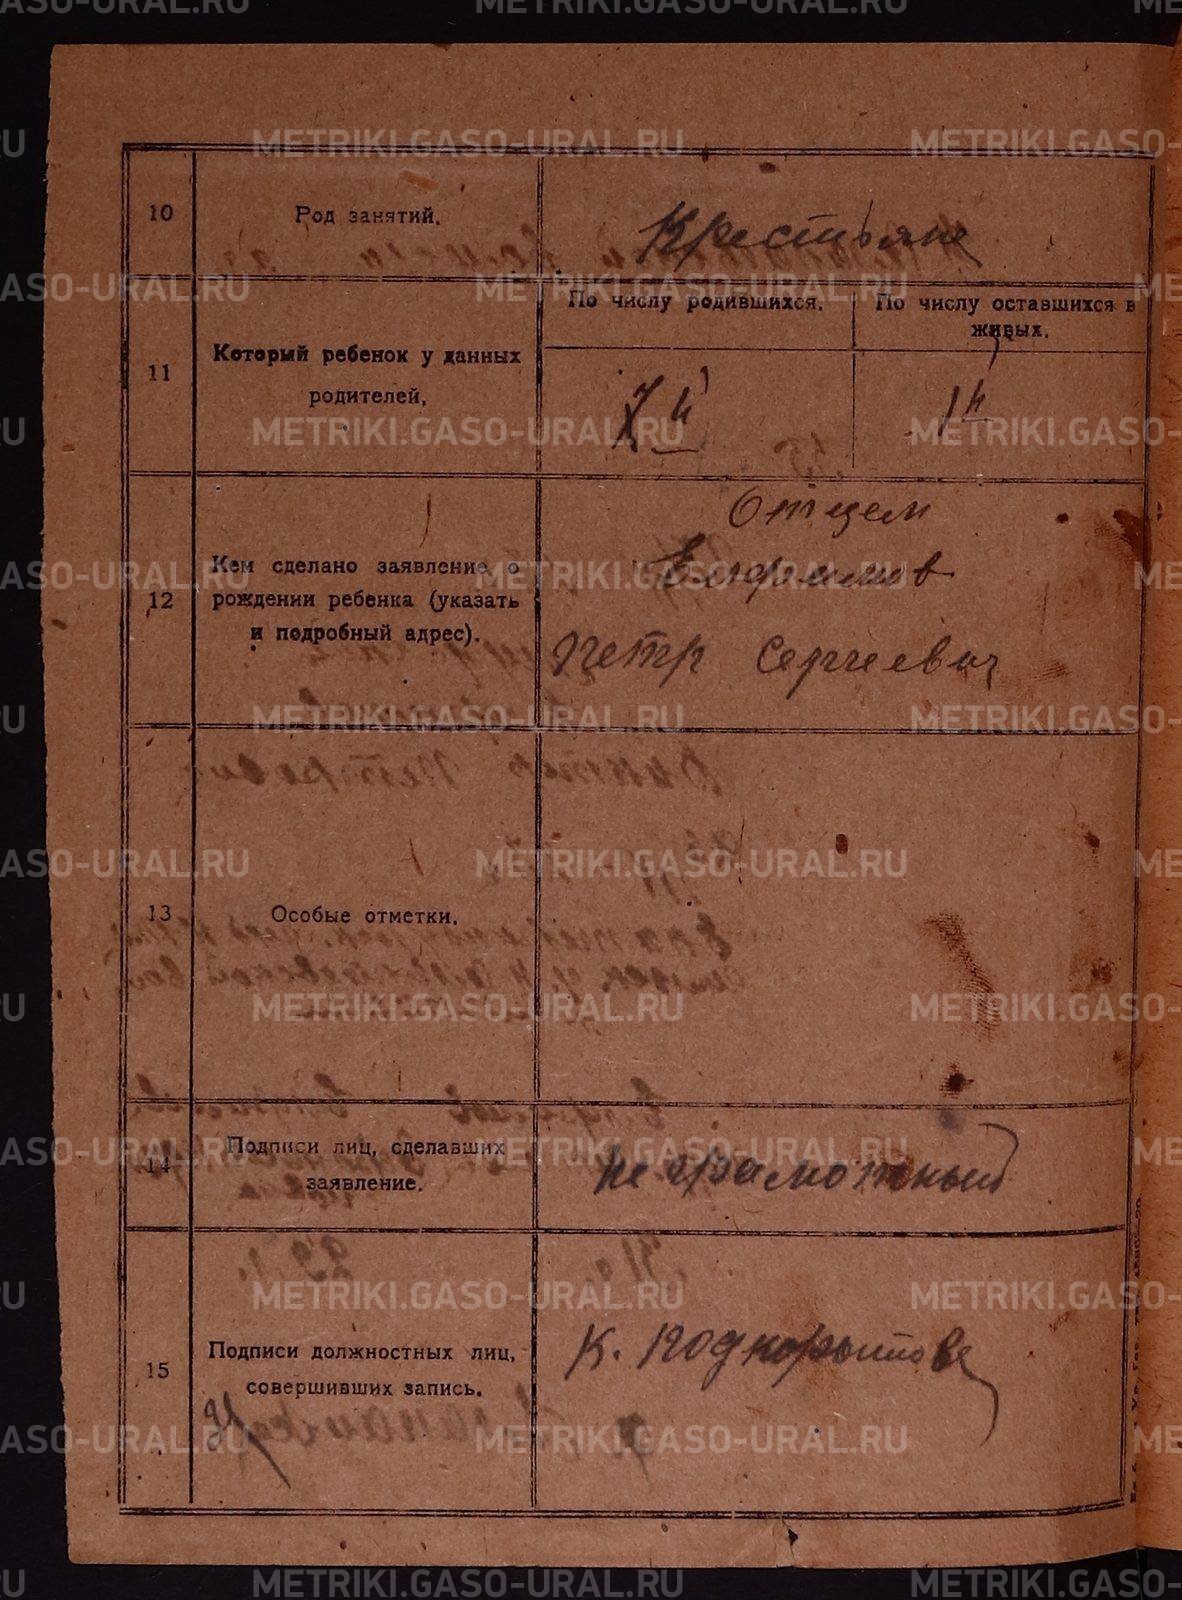 10 Род занятий. Крестьяне
11 Который ребенок у данных
родителей.
По числу родившихся.
7й
По числу оставшихся в
живых.
1й
12 Кем сделано заявление о
рождении ребенка (указать
и подробный адрес).
Отцем
Петр Сергеевич
13 Особые отметки.
14 Подписи лиц, сделавших
заявление.
не грамотный
15 Подписи должностных лиц,
совершивших запись.
К. Подкорытов
METRIKI.GASO-URAL.RU